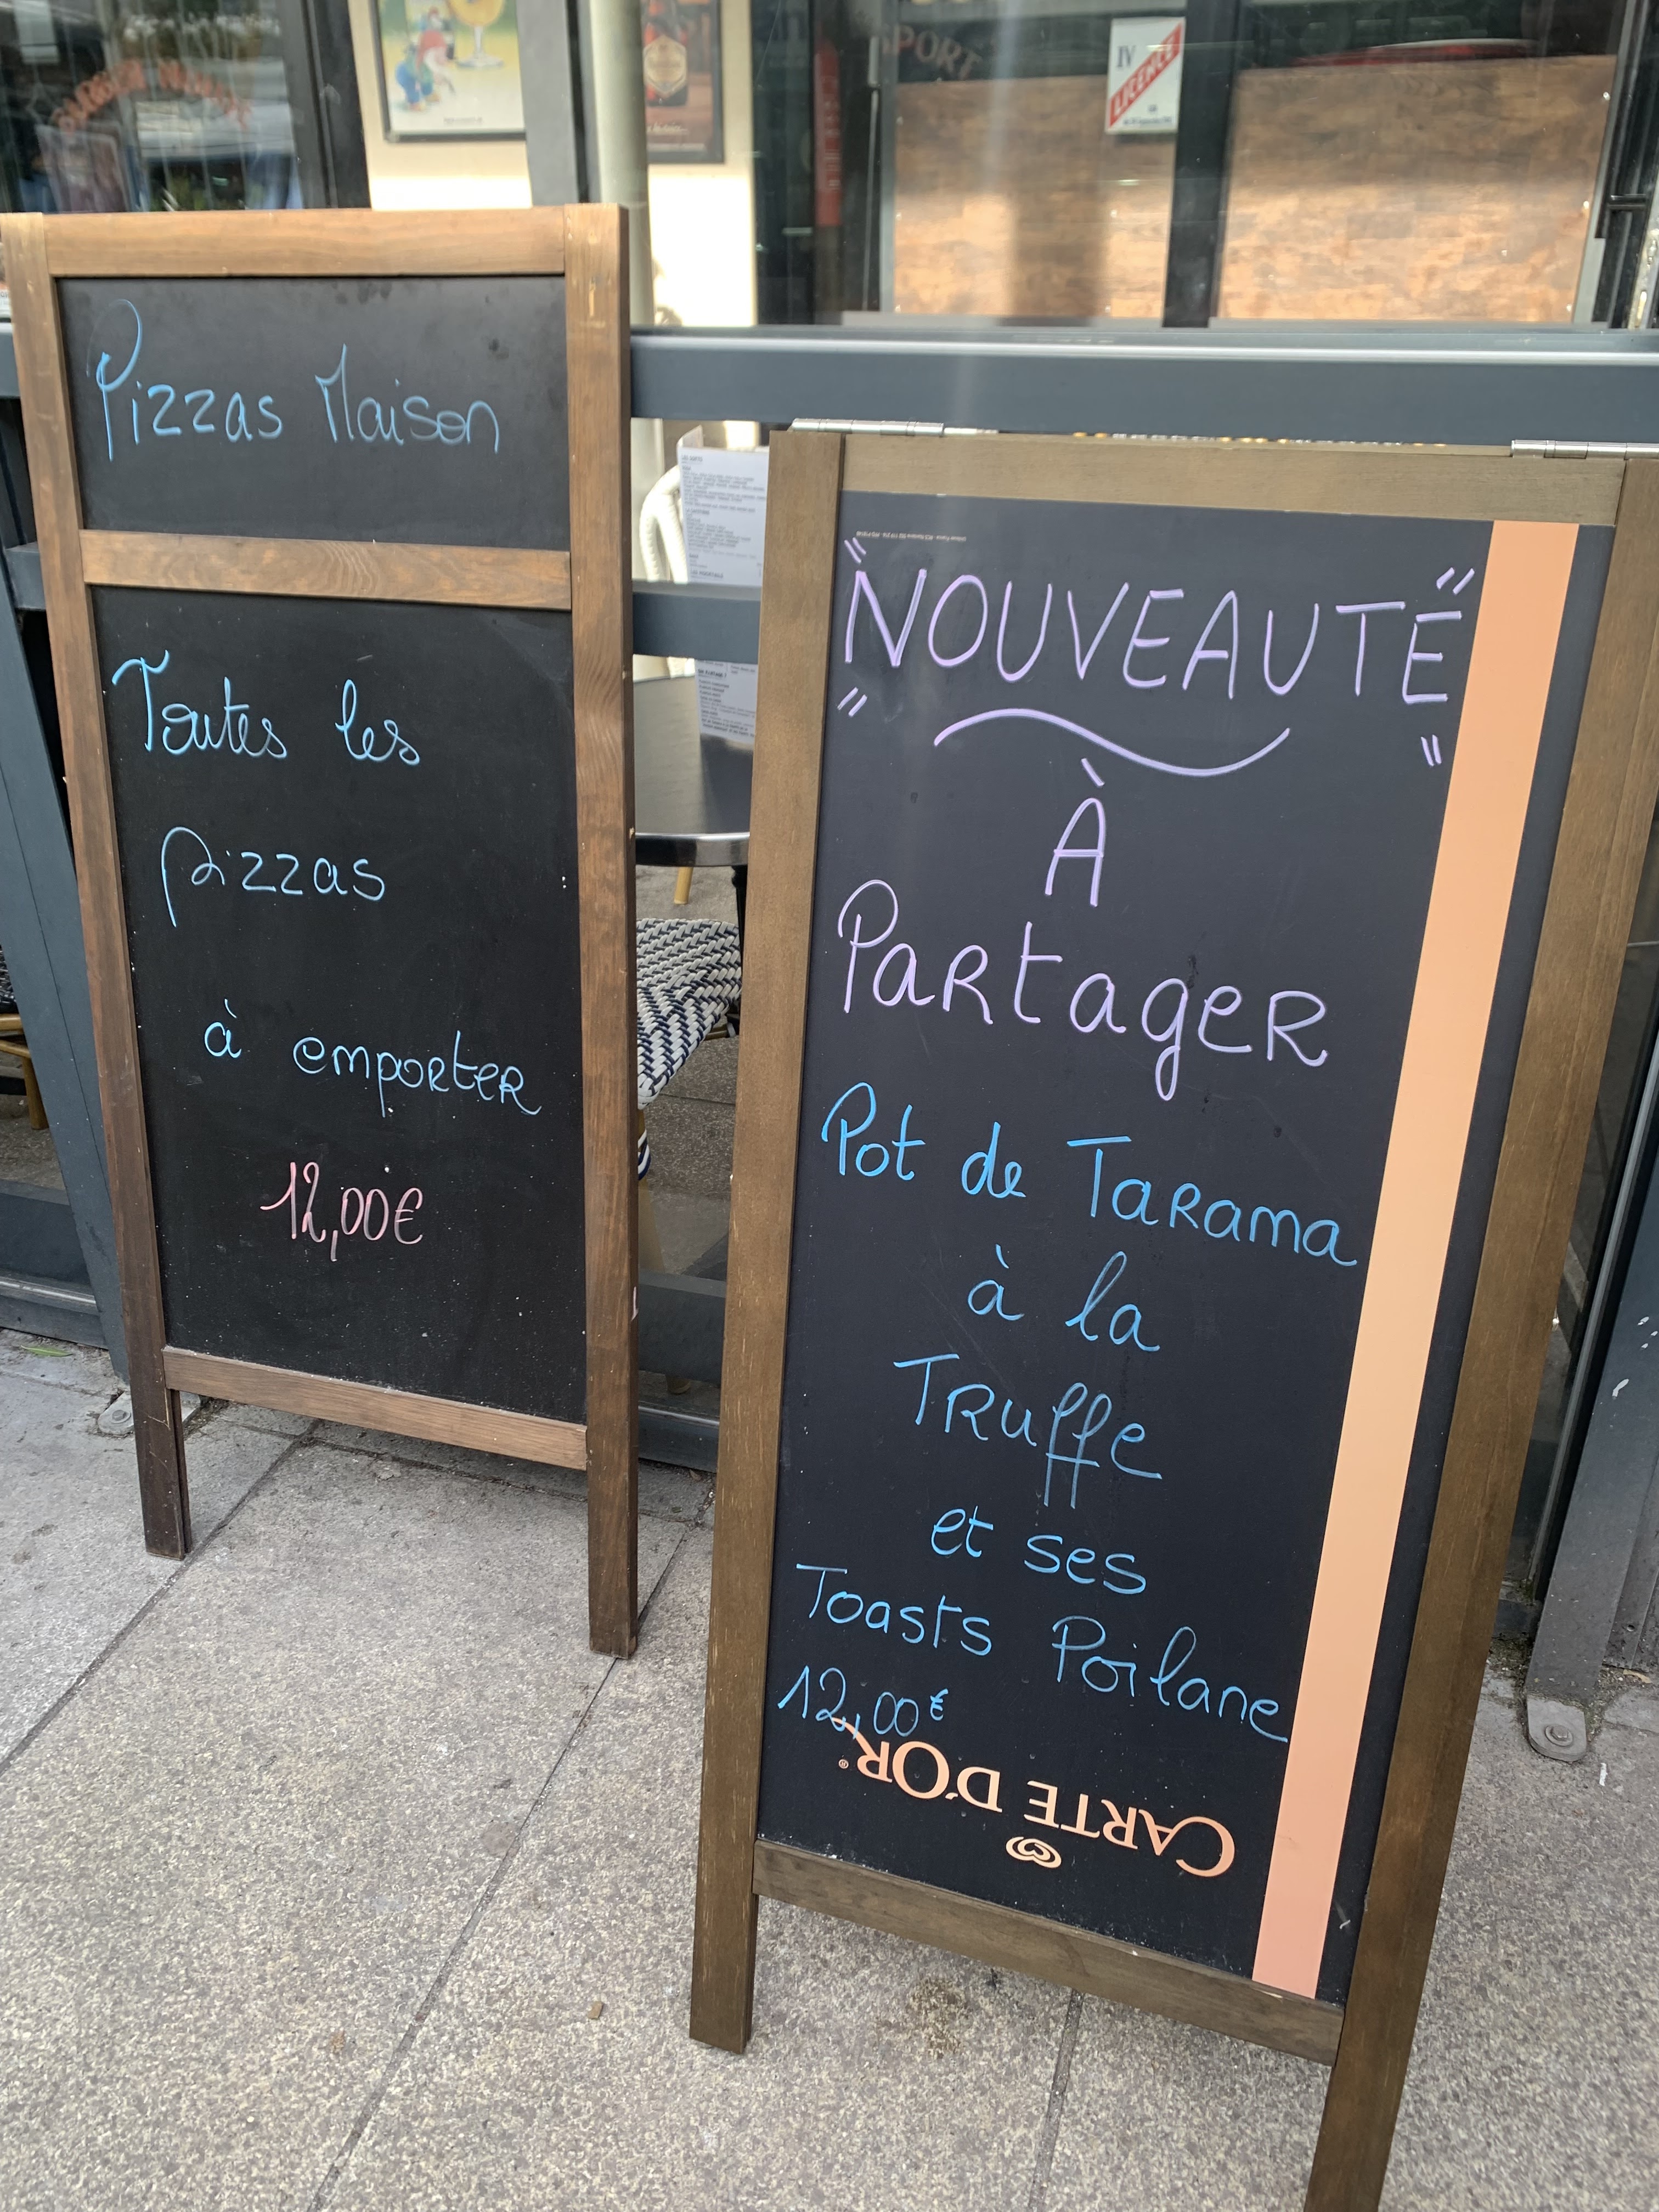 Pizzas Maison
Toutes les
pizzas
à emporter
12,00€
"NOUVEAUTÉ"
À
Partager
Pot de Tarama
à la
Truffe
et ses
Toasts Poilane
12,00€
CARTE D'OR®
IV
LICENCE
PORT